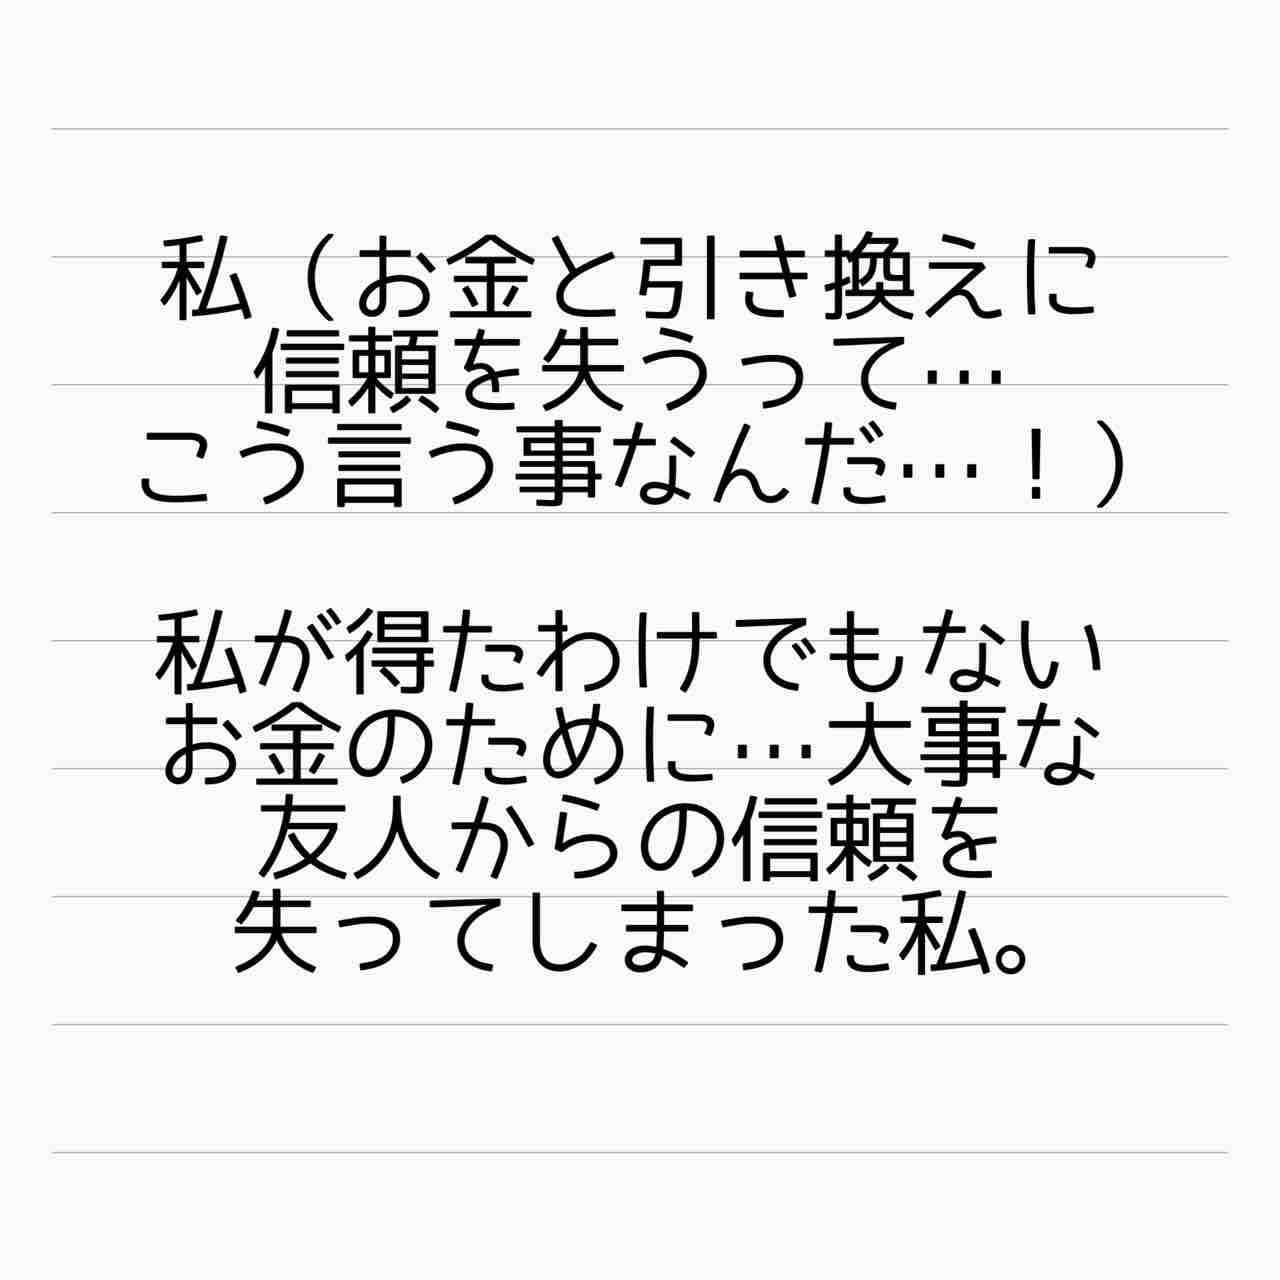 私（お金と引き換えに
信頼を失うって…
こう言う事なんだ…！）
私が得たわけでもない
お金のために…大事な
友人からの信頼を
失ってしまった私。